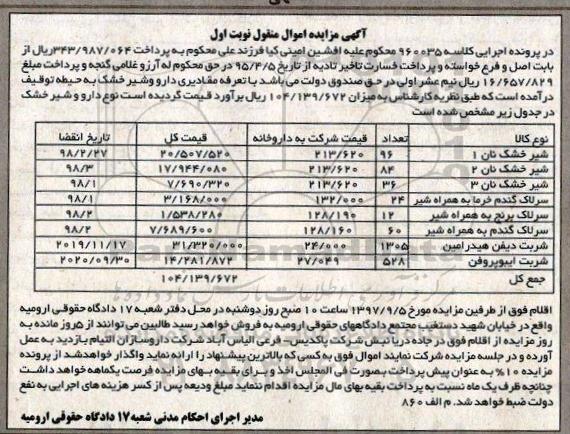 آگهی مزایده اموال منقول نوبت اول
در پرونده اجرایی کلاسه ۹۶۰۰۳۵ محکوم علیه افشین امینی کیا فرزند علی محکوم به پرداخت ۳۴۳/۹۸۷/۰۶۴ریال از
بابت اصل و فرع خواسته و پرداخت خسارت تاخیر تادیه از تاریخ ۹۵/۴/۵ در حق محکوم له آرزو غلامی گنجه و پرداخت مبلغ
۱۶/۶۵۷/۸۲۹ ریال نیم عشر اولی در حق صندوق دولت می باشد با تعرفه مقادیری دارو وشیر خشک به حیطه توقیف
درآمده است که طبق نظریه کارشناس به میزان ۱۰۴/۱۳۹/۶۷۲ ریال برآورد قیمت گردیده است نوع دارو و شیر خشک
در جدول زیر مشخص شده است
نوع کالا تعداد قیمت شرکت به داروخانه قیمت کل تاریخ انقضا
شیر خشک نان ۱ ۹۶ ۲۱۳/۶۲۰ ۲۰/۵۰۷/۵۲۰ ۹۸/۲/۲۷
شیر خشک نان ۲ ۸۴ ۲۱۳/۶۲۰ ۱۷/۹۴۴/۰۸۰ ۹۸/۳
شیر خشک نان ۳ ۳۶ ۲۱۳/۶۲۰ ۷/۶۹۰/۳۲۰ ۹۸/۱
سرلاک گندم خرما به همراه شیر ۲۴ ۱۳۲/۰۰۰ ۳/۱۶۸/۰۰۰ ۹۸/۱
سرلاک برنج به همراه شیر ۱۲ ۱۲۸/۱۹۰ ۱/۵۳۸/۲۸۰ ۹۸/۲
سرلاک گندم به همراه شیر ۶۰ ۱۲۸/۱۶۰ ۷/۶۸۹/۶۰۰ ۹۸/۲
شربت دیفن هیدرامین ۱۳۰۵ ۲۴/۰۰۰ ۳۱/۳۲۰/۰۰۰ ۲۰۱۹/۱۱/۱۷
شربت ایبوپروفن ۵۲۸ ۲۷/۰۴۹ ۱۴/۲۸۱/۸۷۲ ۲۰۲۰/۰۹/۳۰
جمع کل ۱۰۴/۱۳۹/۶۷۲
اقلام فوق از طرفین مزایده مورخ ۱۳۹۷/۹/۵ ساعت ۱۰ صبح روز دوشنبه در محل دفتر شعبه ۱۷ دادگاه حقوقی ارومیه
واقع در خیابان شهید دستغیب مجتمع دادگاههای حقوقی ارومیه به فروش خواهد رسید طالبین می توانند از ۵روز مانده به
روز مزایده از اقلام فوق در جاده دریا نبش شرکت پاکدیس – فرعی الیاس آباد شرکت داروسازان التیام بازدید به عمل
آورده و در جلسه مزایده شرکت نمایند اموال فوق به کسی که بالاترین پیشنهاد را ارائه نماید واگذار خواهد شد از پرونده
مزایده ۱۰% به عنوان پیش پرداخت بصورت فی المجلس اخذ و برای بقیه بهای مزایده فرصت یکماهه خواهد داشت
چنانچه ظرف یک ماه نسبت به پرداخت بقیه بهای مال مزایده اقدام ننماید مبلغ ودیعه پس از کسر هزینه های اجرایی به نفع
دولت ضبط خواهد شد. م الف ۸۶۰
مدیر اجرای احکام مدنی شعبه ۱۷ دادگاه حقوقی ارومیه